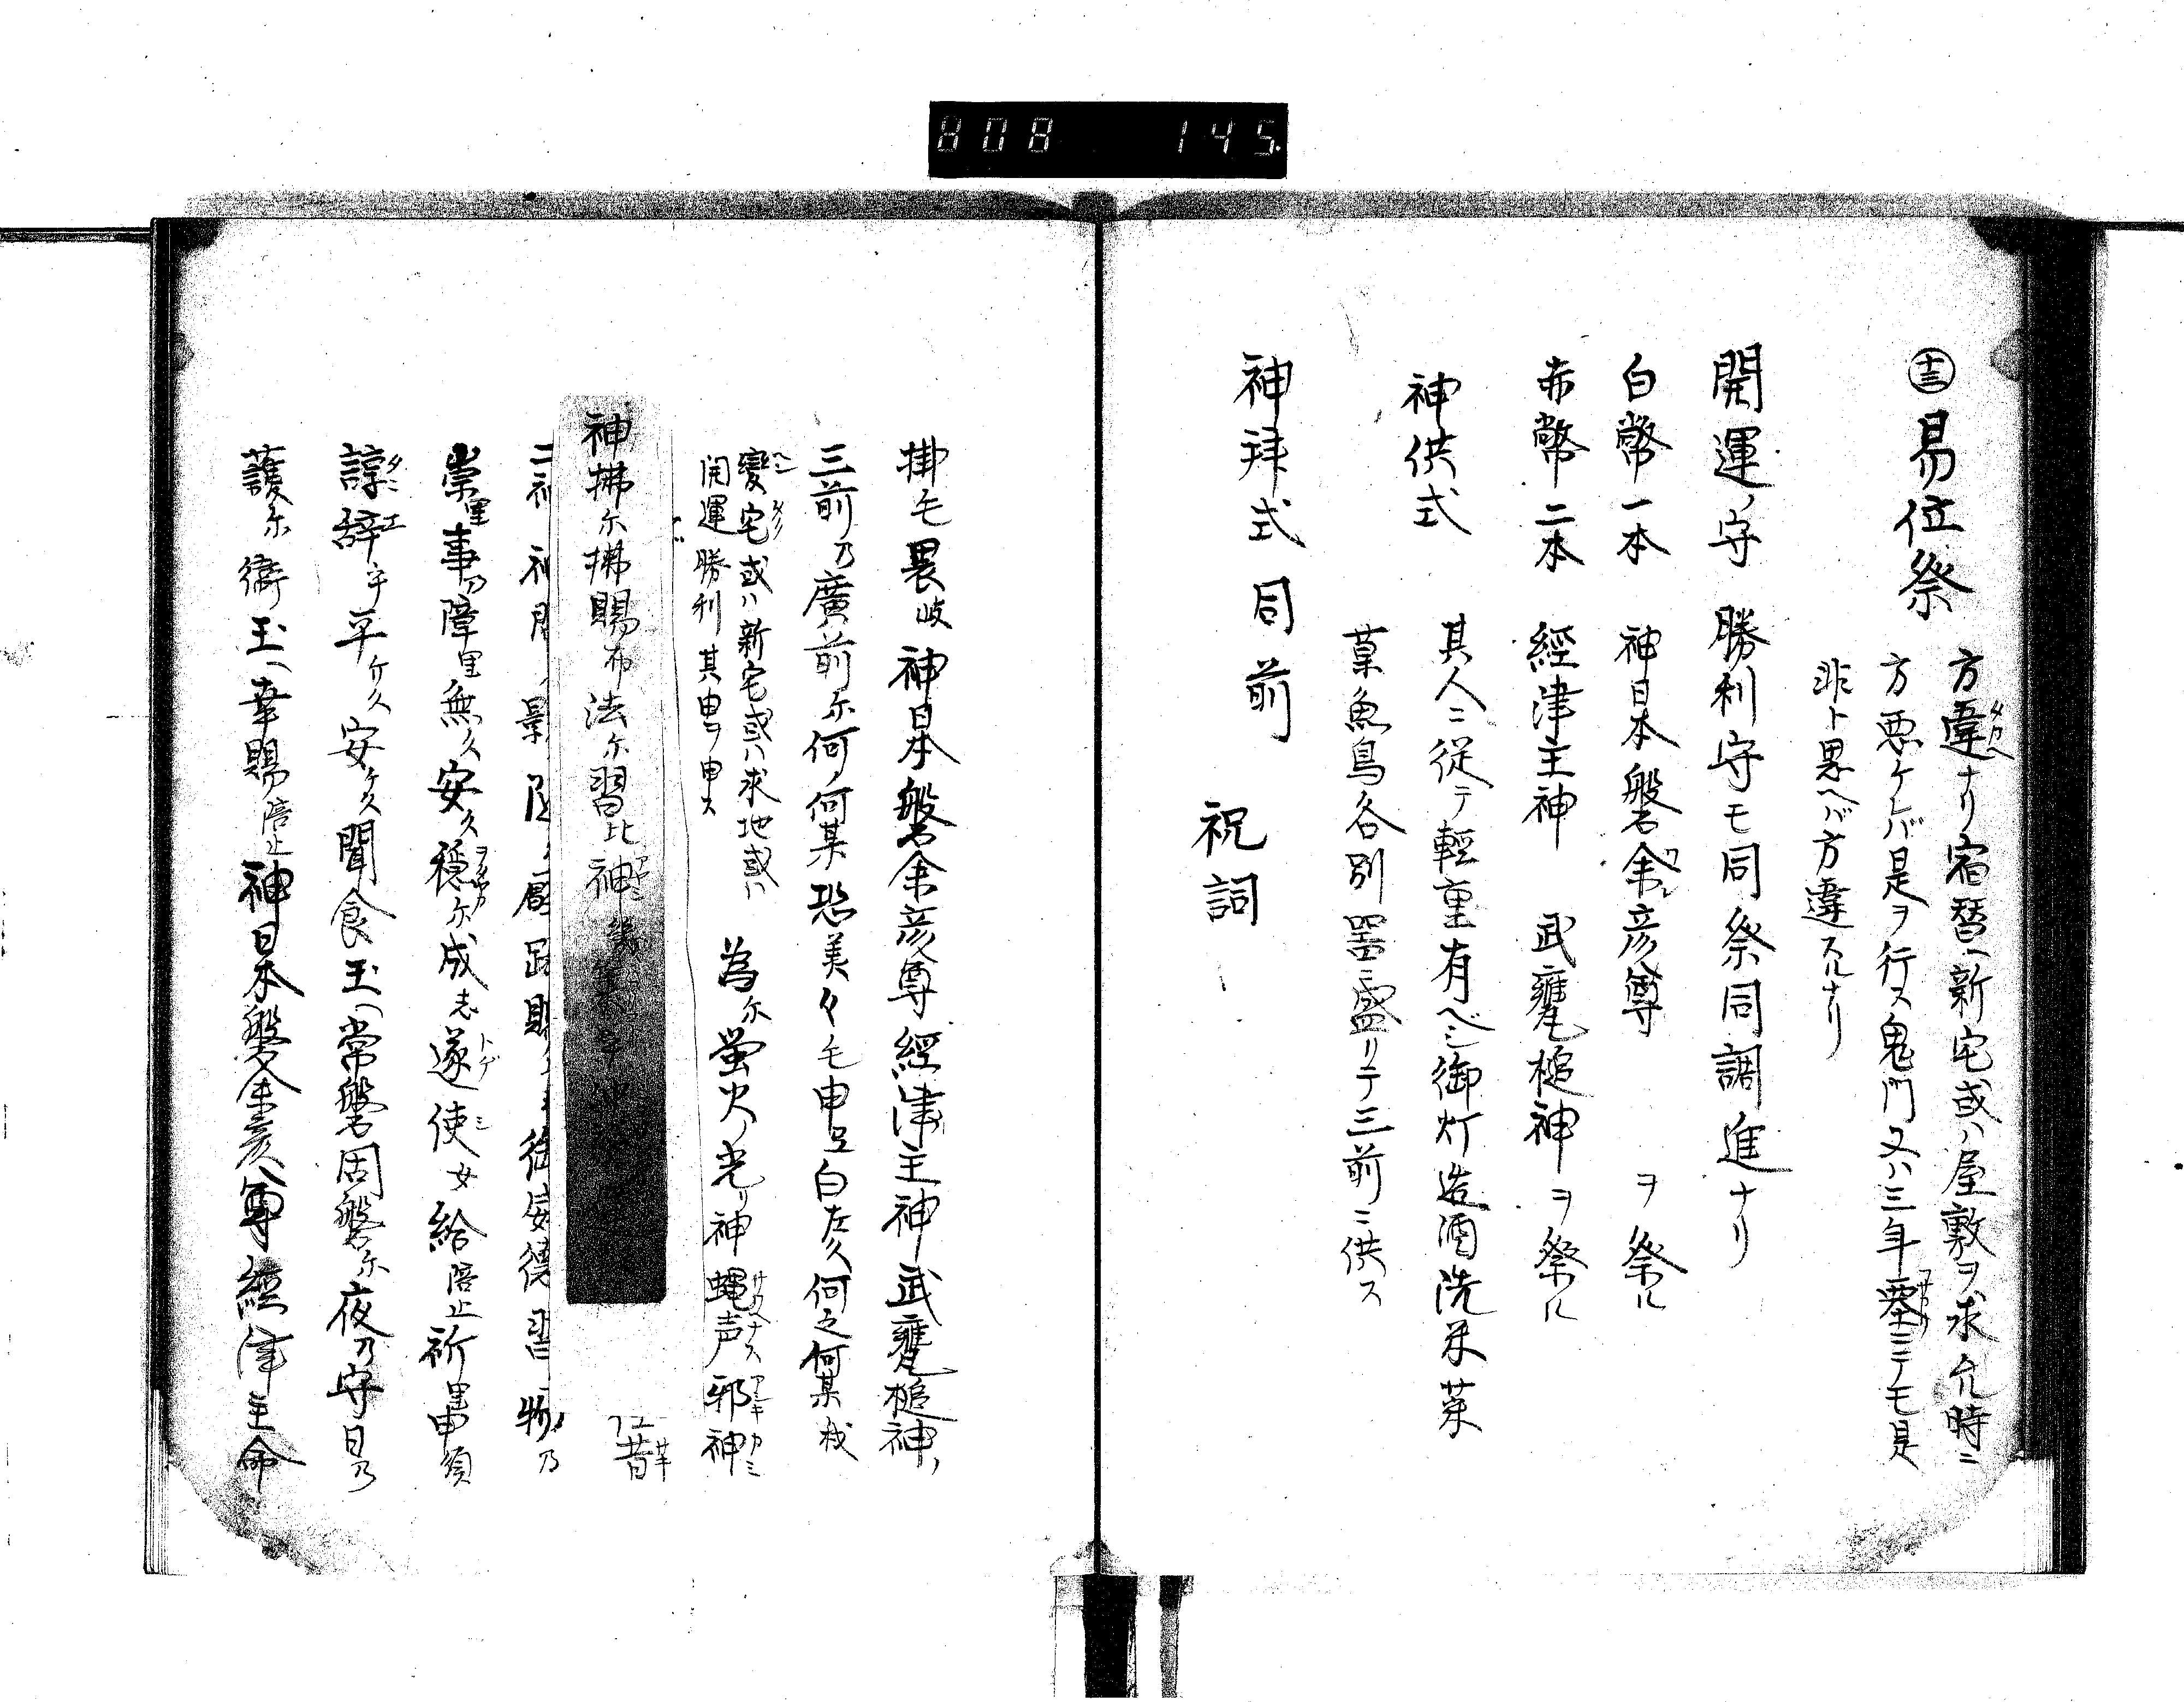 808 145
㊉三 易位祭
方違ナリ宿替ヘ新宅或ハ屋敷ヲ求ル時ニ
方悪ケレバ是ヲ行ス鬼門又ハ三年塞ニテモ是
非ト思ヘバ方違スルナリ
開運ノ守 勝利守モ同祭同調進ナリ
白幣一本 神日本磐余彦尊 ヲ祭ル
赤幣二本 經津主神 武甕槌神ヲ祭ル
神供式 其人ニ従テ輕重有ベシ御灯造酒洗米菜
菓魚鳥各別器盛リテ三前ニ供ス
神拜式 同前
祝詞
掛モ畏岐神日本磐余彦尊經津主神武甕槌神ノ
三前乃廣前尓何ノ何某恐美々モ申呈白左久何之何某我
變宅或ハ新宅或ハ求地或ハ
開運勝利其由ヲ申ス
為尓螢火ノ光リ神蠅声邪神
神拂尓拂賜布法尓習比神
昔
祟里事乃障里無久安久穏尓成志遂使女給陪止祈里申須
諄辞乎平ケク安ケク聞食玉ヘ常磐固磐尓夜乃守日乃
護尓衛玉ヘ幸賜陪止神日本磐余彦尊經津主命